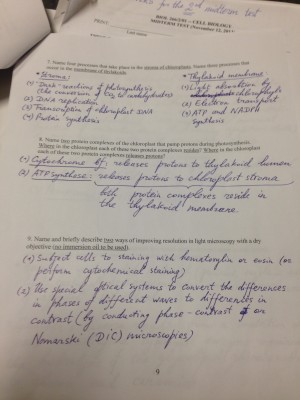 for the 2nd midterm test
BIOL 266/2XX - CELL BIOLOGY
MIDTERM TEST (November 12,
Last name
7. Name four processes that take place in the stroma of chloroplasts. Name three processes that
occur in the membrane of thylakoids.
• Stroma:
(1) Dark-reactions of photosynthesis
(the conversion of CO2 to carbohydrates)
(2) DNA replication
(3) Transcription of chloroplast DNA
(4) Protein synthesis
• Thylakoid membrane:
(1) Light absorption by
chlorophyls
(2) Electron transport
(3) ATP and NADPH
synthesis
8. Name two protein complexes of the chloroplast that pump protons during photosynthesis.
Where in the chloroplast each of these two protein complexes resides? Where in the chloroplast
each of these two protein complexes releases protons?
(1) Cytochrome bf: releases protons to thylakoid lumen
(2) ATP synthase: releases protons to chloroplast stroma
both protein complexes reside in
the thylakoid membrane.
9. Name and briefly describe two ways of improving resolution in light microscopy with a dry
objective (no immersion oil to be used).
(1) Subject cells to staining with hematoxylin or eosin (or
perform cytochemical staining)
(2) Use special optical systems to convert the differences
in phases of different waves to differences in
contrast (by conducting phase-contrast or
Nomarski (DIC) microscopies)
9